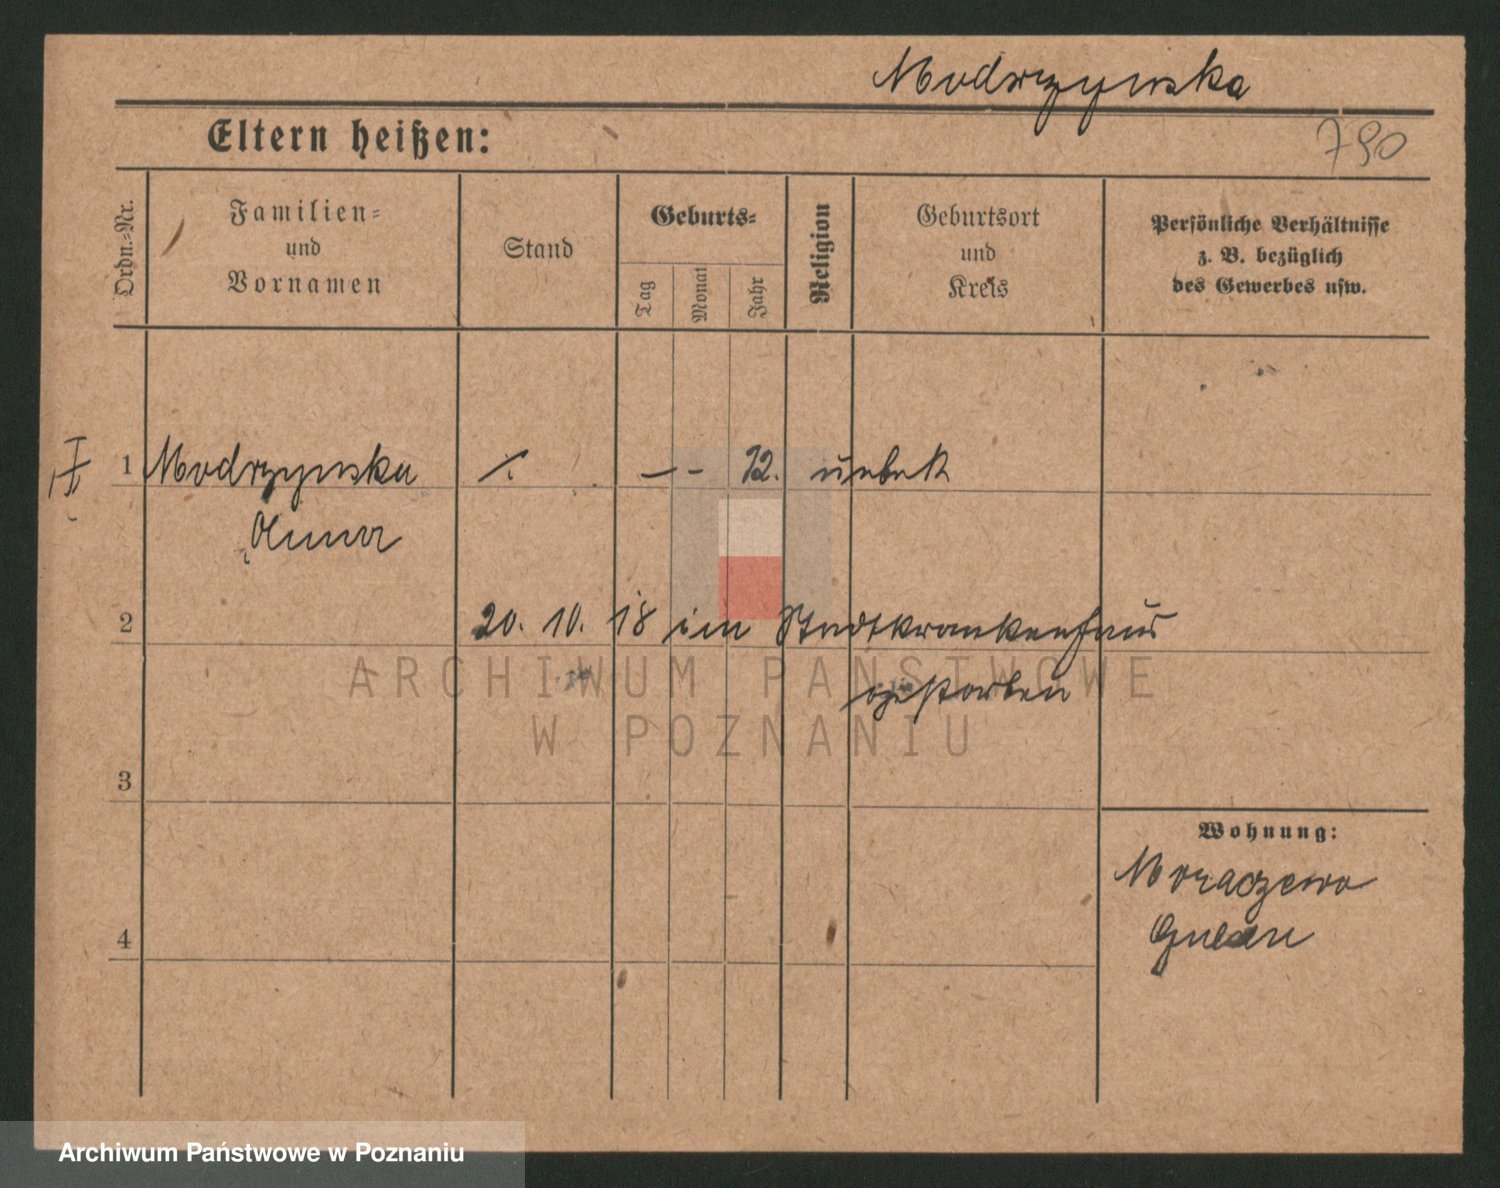 Modrzynska
Eltern heißen:
790
Ordn.-Nr.
Familien-
und
Vornamen
Stand
Geburts-
Tag
Monat
Jahr
Religion
Geburtsort
und
Kreis
Persönliche Verhältnisse
z. B. bezüglich
des Gewerbes usw.
1 Modrzynska /. — - 12. unbek
Anna
2 20. 10. 18 im Stadtkrankenhaus
gestorben
3
Wohnung:
Moraczewo
4
ARCHIWUM PAŃSTWOWE
W POZNANIU
Archiwum Państwowe w Poznaniu